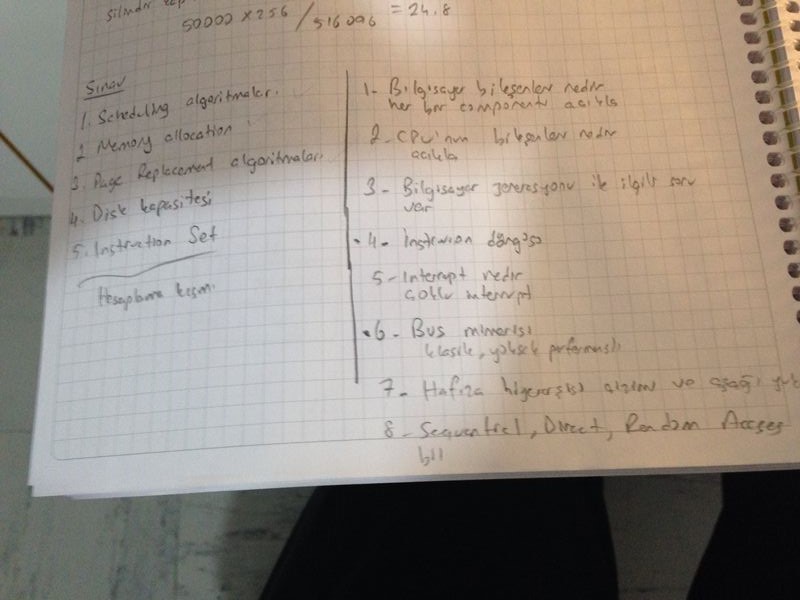 silindir
50000 x 256 / 516096 = 24.8
Sınav
1. Scheduling algoritmaları.
2 Memory allocation
3. Page Replacement algoritmaları
4. Disk kapasitesi
5. Instruction Set
Hesaplama kısmı
1- Bilgisayar bileşenleri nedir
her bir componenti açıkla
2- CPU'nun bileşenleri nedir
açıkla
3- Bilgisayar jenerasyonu ile ilgili soru
var
4- Instruction döngüsü
5- Interrupt nedir
Çoklu interrupt
6- Bus mimarisi
klasik, yüksek performanslı
7- Hafıza hiyerarşisi çizimi ve aşağı
8- Sequential, Direct, Random Access
bil